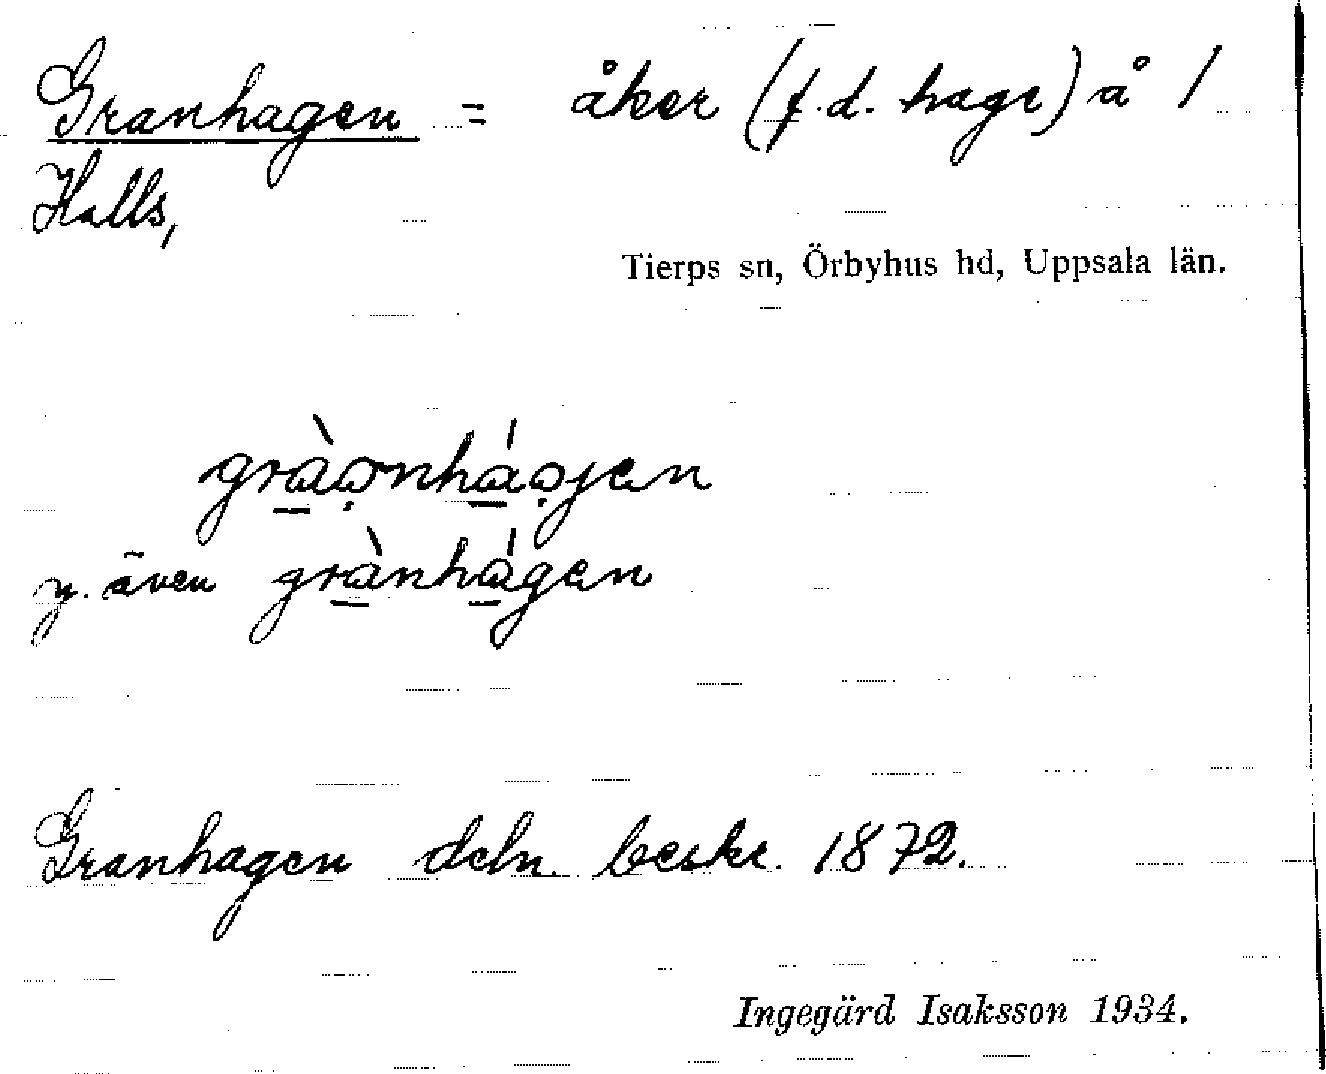 Granhagen = åker (f.d. hage) å 1
Halls,
Tierps sn, Örbyhus hd, Uppsala län.
grànhájen
y. även grànhágen
Granhagen deln. beskr. 1872.
Ingegärd Isaksson 1934.